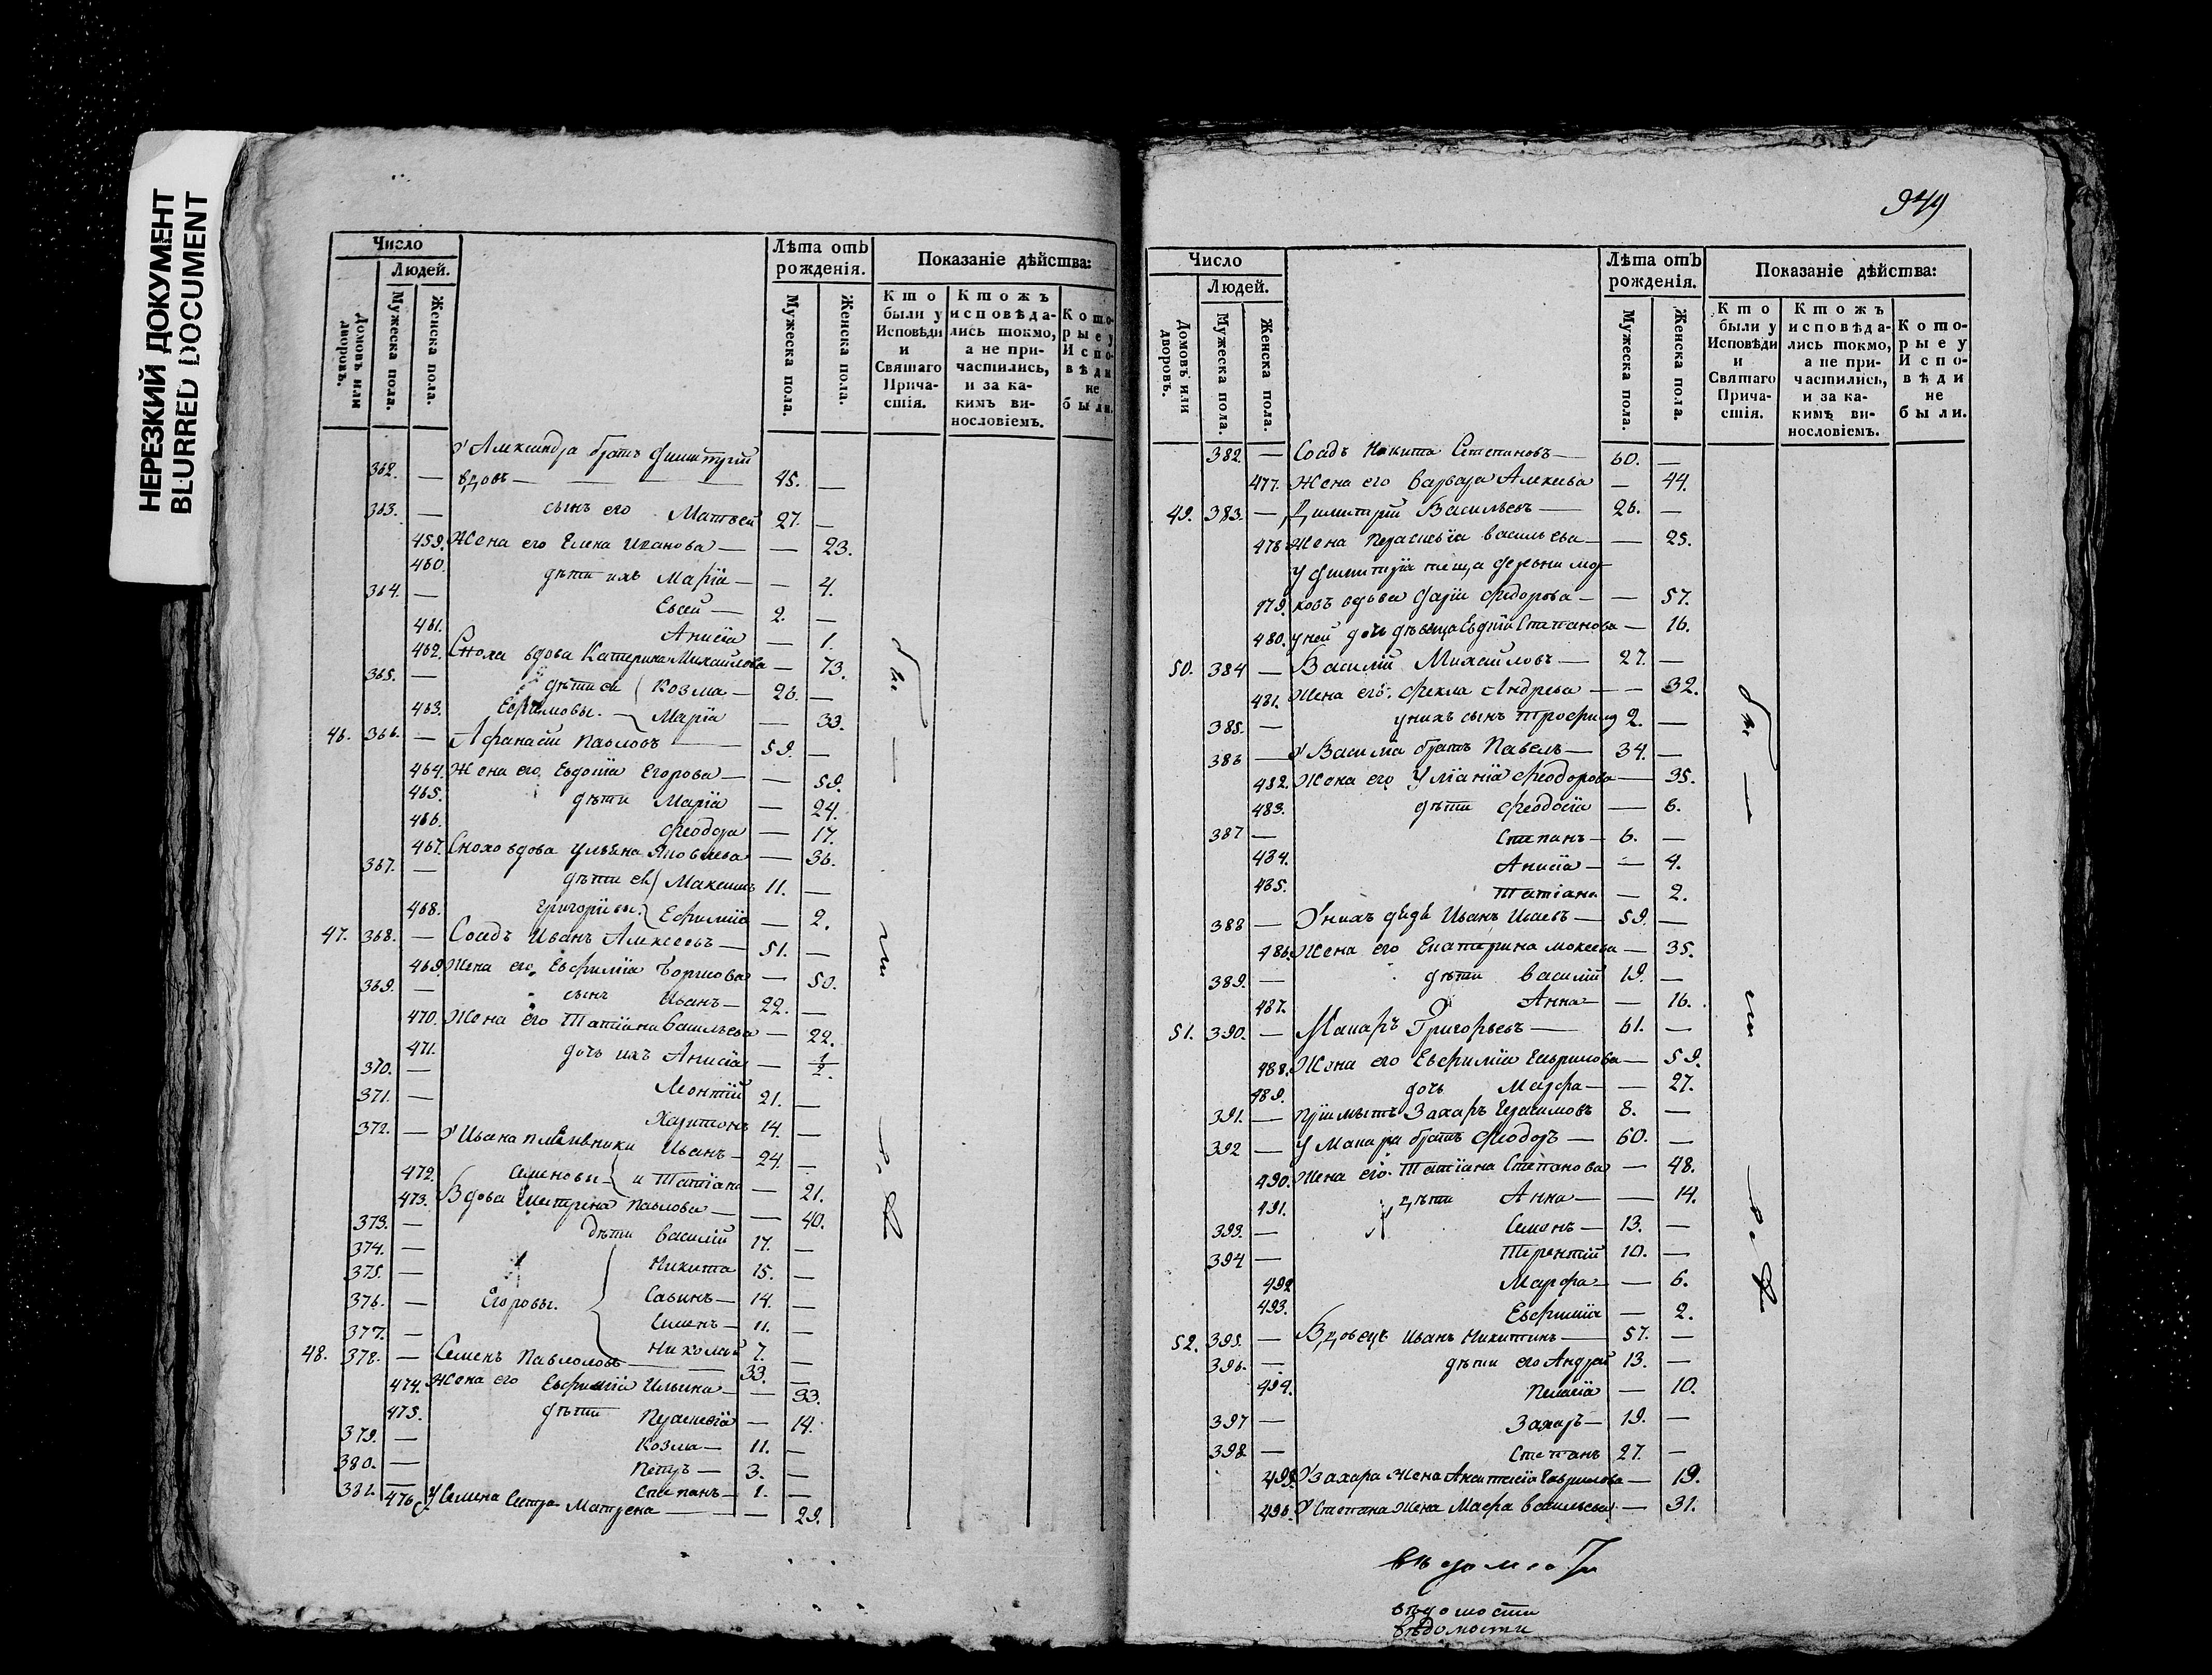 НЕРЕЗКИЙ ДОКУМЕНТ
BLURRED DOCUMENT
Число
Людей.
Домовъ или дворовъ.
Мужеска пола.
Женска пола.
Лѣта отъ рожденія.
Мужеска пола.
Женска пола.
Показаніе дѣйства:
Кто были у Исповѣди и Святаго Причастія.
Ктожъ исповѣдались токмо, а не причастились, и за какимъ винословіемъ.
Которые у Исповѣди не были.
У Александра братъ Димитрій
362. — вдовъ — 45. —
363. — сынъ его Матвей 27. —
459. Жена его Елена Иванова — — 23.
460. дѣти ихъ Марія — — 4.
364. — Евсей — 2. —
461. Анисія — 1.
462. Сноха вдова Катерина Михайлова — 73.
365. — дѣти ея Козма — 26. —
463. Ефимовы. Марія — 33.
46. 366. — Афанасій Павловъ — 59. —
464. Жена его Евдокія Егорова — — 59.
465. дѣти Марія — 24.
466. Феодора — 17.
467. Сноха вдова Ульяна Яковлева — 36.
367. — дѣти ея Максимъ 11. —
468. Григорьевы. Ефимія — 2.
47. 368. — Сосѣдъ Иванъ Алексеевъ — 51. —
469. Жена его Евфимія Борисова — 50.
369. — сынъ Иванъ — 22. —
470. Жена его Татіана Васильева — 22.
471. дочь ихъ Анисія — 1/2.
370. — Леонтій 21. —
371. — Харитонъ 14. —
372. — У Ивана племянники Иванъ — 24. —
472. Семеновы и Татіана — 21.
473. Вдова Катерина Павлова — — 40.
373. — дѣти Василій 17. —
374. — Никита 15. —
375. — Савинъ — 14. —
376. — Егоровы. Семенъ — 11. —
377. — Николай 7. —
48. 378. — Семенъ Павловъ — 33. —
474. Жена его Евфимія Ильина — — 33.
475. дѣти Прасковія — 14.
379. — Козма — 11. —
380. — Петръ — 3. —
381. — Степанъ — 1. —
476. У Семена Сестра Матрена — — 29.
949
Число
Людей.
Домовъ или дворовъ.
Мужеска пола.
Женска пола.
Лѣта отъ рожденія.
Мужеска пола.
Женска пола.
Показаніе дѣйства:
Кто были у Исповѣди и Святаго Причастія.
Ктожъ исповѣдались токмо, а не причастились, и за какимъ винословіемъ.
Которые у Исповѣди не были.
382. — Сосѣдъ Никита Степановъ — 60. —
477. Жена его Варвара Алексева — 44.
49. 383. — Димитрій Васильевъ — 26. —
478 Жена Параскевія Васильева — — 25.
У Димитрія теща деревни
479. вдова Дарія Федорова — — 57.
480. у ней дочь дѣвица Евдокія Степанова — 16.
50. 384 — Василій Михайловъ — 27. —
481. Жена его Фекла Андреева — — 32.
385. — у нихъ сынъ Трофимъ 2. —
386 — У Василія братъ Павелъ — 34. —
482. Жена его Уліанія Феодорова — 35.
483. дѣти Феодосія — 6.
387 — Степанъ — 6. —
484. Анисія — — 4.
485. Татіана — 2.
388 — У нихъ дядя Иванъ Исаевъ — 59. —
486. Жена его Екатерина Мокеева — 35.
389. — дѣти Василій 19. —
487. Анна — — 16.
51. 390. — Макаръ Григорьевъ — 61. —
488. Жена его Евфимія Гаврилова — 59.
489. дочь Марфа — — 27.
391. — Пріимышъ Захаръ Герасимовъ 8. —
392 — У Макара братъ Феодоръ — 60. —
490. Жена его Татіана Степанова — 48.
491. дѣти Анна — — 14.
393. — Семенъ — 13. —
394 — Терентій 10. —
492 Марфа — — 6.
493. Евфимія — 2.
52. 395. — Вдовецъ Иванъ Никитинъ — 57. —
396. — дѣти его Андрей 13. —
494. Пелагія — 10.
397 — Захаръ — 19. —
398 — Степанъ 27. —
495. У Захара жена Гаврилова — 19.
496. У Степана жена Васильева — 31.
вѣдомост
вѣдомости
вѣдомости